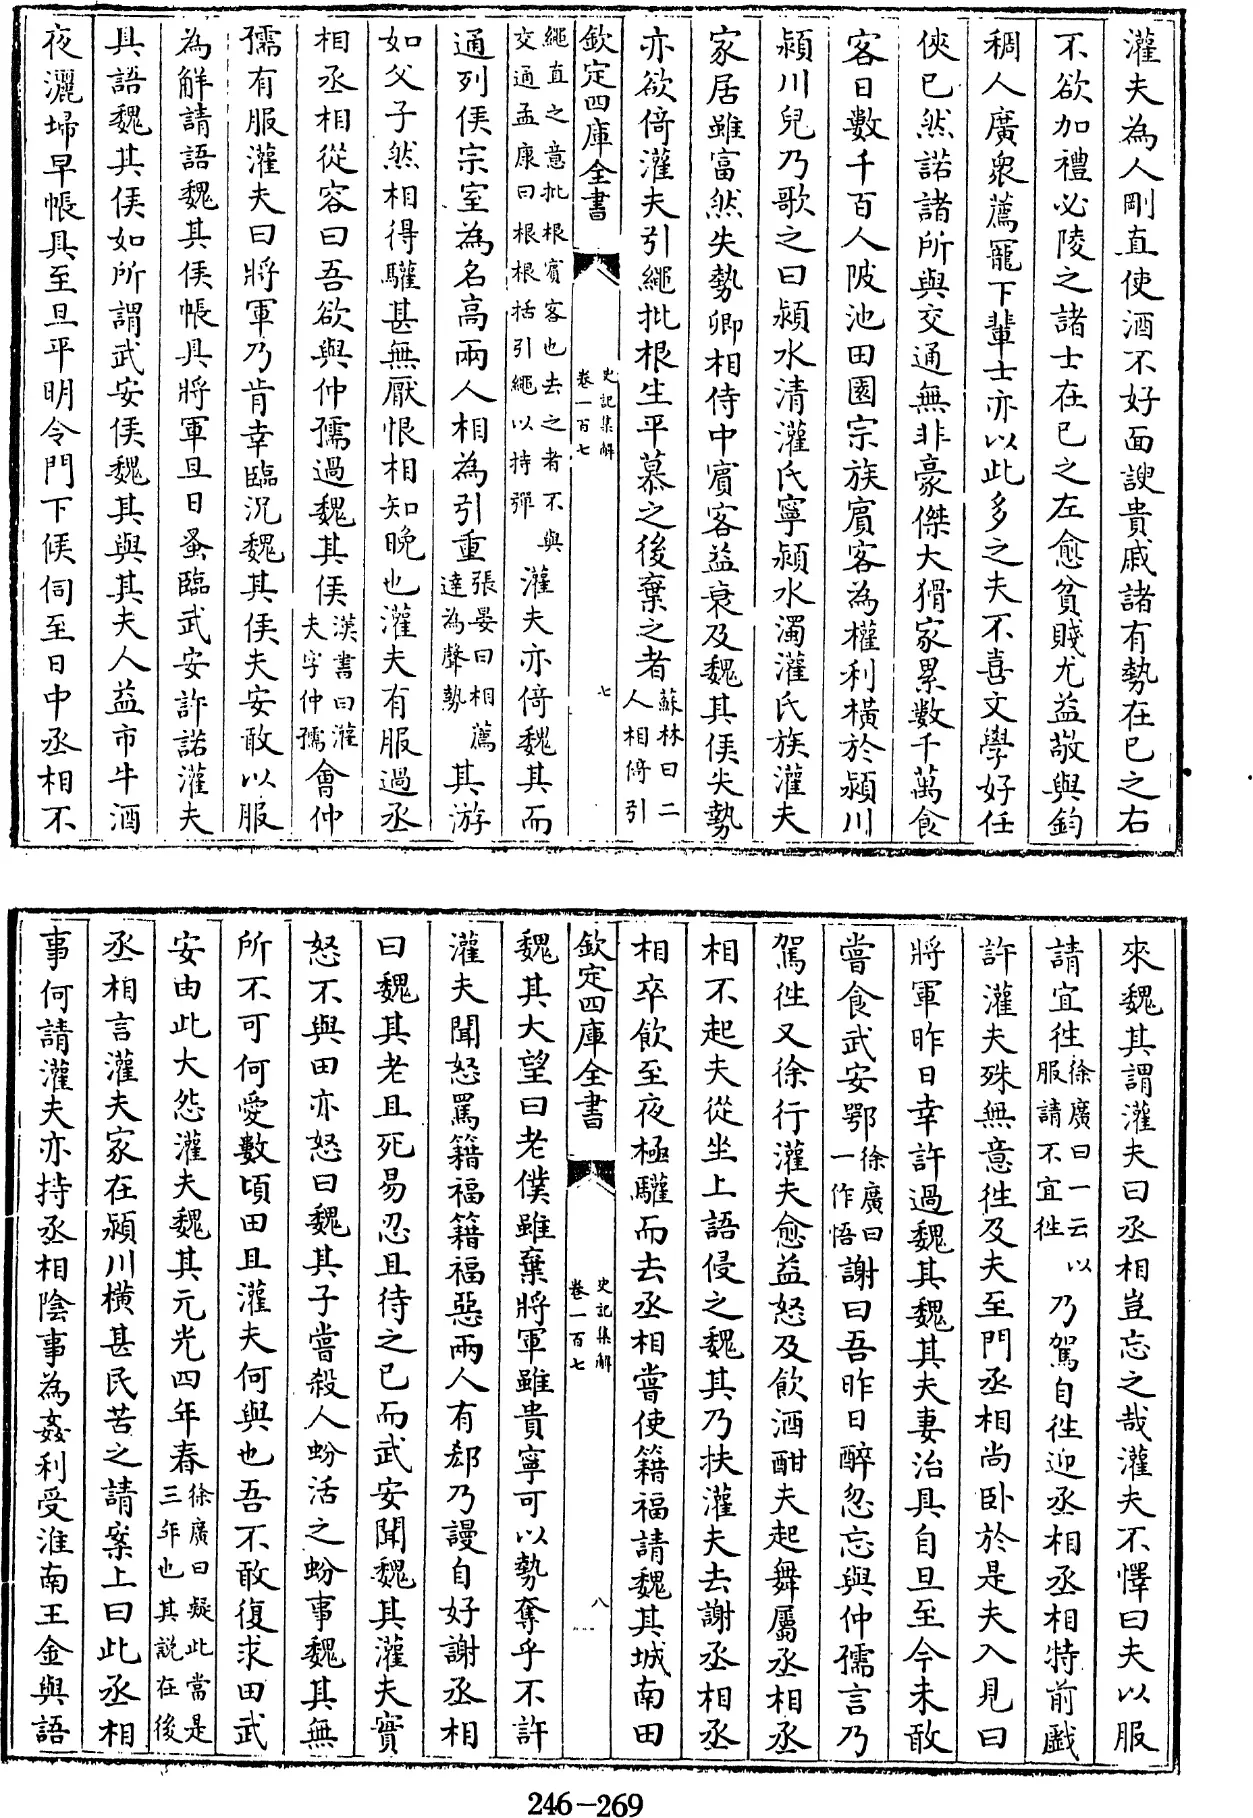 灌夫為人剛直使酒不好面諛貴戚諸有勢在已之右
不欲加禮必陵之諸士在已之左愈貧賤尤益敬與鈞
稠人廣衆薦寵下輩士亦以此多之夫不喜文學好任
俠已然諾諸所與交通無非豪傑大猾家累數千萬食
客日數千百人陂池田園宗族賔客為權利橫於潁川
潁川兒乃歌之曰潁水清灌氏寧潁水濁灌氏族灌夫
家居雖富然失勢卿相侍中賔客益衰及魏其侯失勢
亦欲倚灌夫引繩批根生平慕之後棄之者蘇林曰二人相倚引
繩直之意批根賔客也去之者不與交通孟康曰根根括引繩以持彈灌夫亦倚魏其而
通列侯宗室為名髙兩人相為引重張晏曰相薦達為聲勢其游
如父子然相得驩甚無厭恨相知晚也灌夫有服過丞
相丞相從容曰吾欲與仲孺過魏其侯漢書曰灌夫字仲孺會仲
孺有服灌夫曰將軍乃肯幸臨況魏其侯夫安敢以服
為解請語魏其侯帳具將軍旦日蚤臨武安許諾灌夫
具語魏其侯如所謂武安侯魏其與其夫人益市牛酒
夜灑埽早帳具至旦平明令門下候伺至日中丞相不
欽定四庫全書
史記集解
卷一百七
七
來魏其謂灌夫曰丞相豈忘之哉灌夫不懌曰夫以服
請宜徃徐廣曰一云以服請不宜徃乃駕自徃迎丞相丞相特前戲
許灌夫殊無意徃及夫至門丞相尚卧於是夫入見曰
將軍昨日幸許過魏其魏其夫妻治具自旦至今未敢
嘗食武安鄂徐廣曰一作悟謝曰吾昨日醉忽忘與仲孺言乃
駕徃又徐行灌夫愈益怒及飲酒酣夫起舞屬丞相丞
相不起夫從坐上語侵之魏其乃扶灌夫去謝丞相丞
相卒飲至夜極驩而去丞相嘗使籍福請魏其城南田
欽定四庫全書
史記集解
卷一百七
八
魏其大望曰老僕雖棄將軍雖貴寧可以勢奪乎不許
灌夫聞怒罵籍福籍福惡兩人有郄乃謾自好謝丞相
曰魏其老且死易忍且待之已而武安聞魏其灌夫實
怒不與田亦怒曰魏其子嘗殺人蚡活之蚡事魏其無
所不可何愛數頃田且灌夫何與也吾不敢復求田武
安由此大怨灌夫魏其元光四年春徐廣曰疑此當是三年也其説在後
丞相言灌夫家在潁川橫甚民苦之請案上曰此丞相
事何請灌夫亦持丞相陰事為姦利受淮南王金與語
246-269